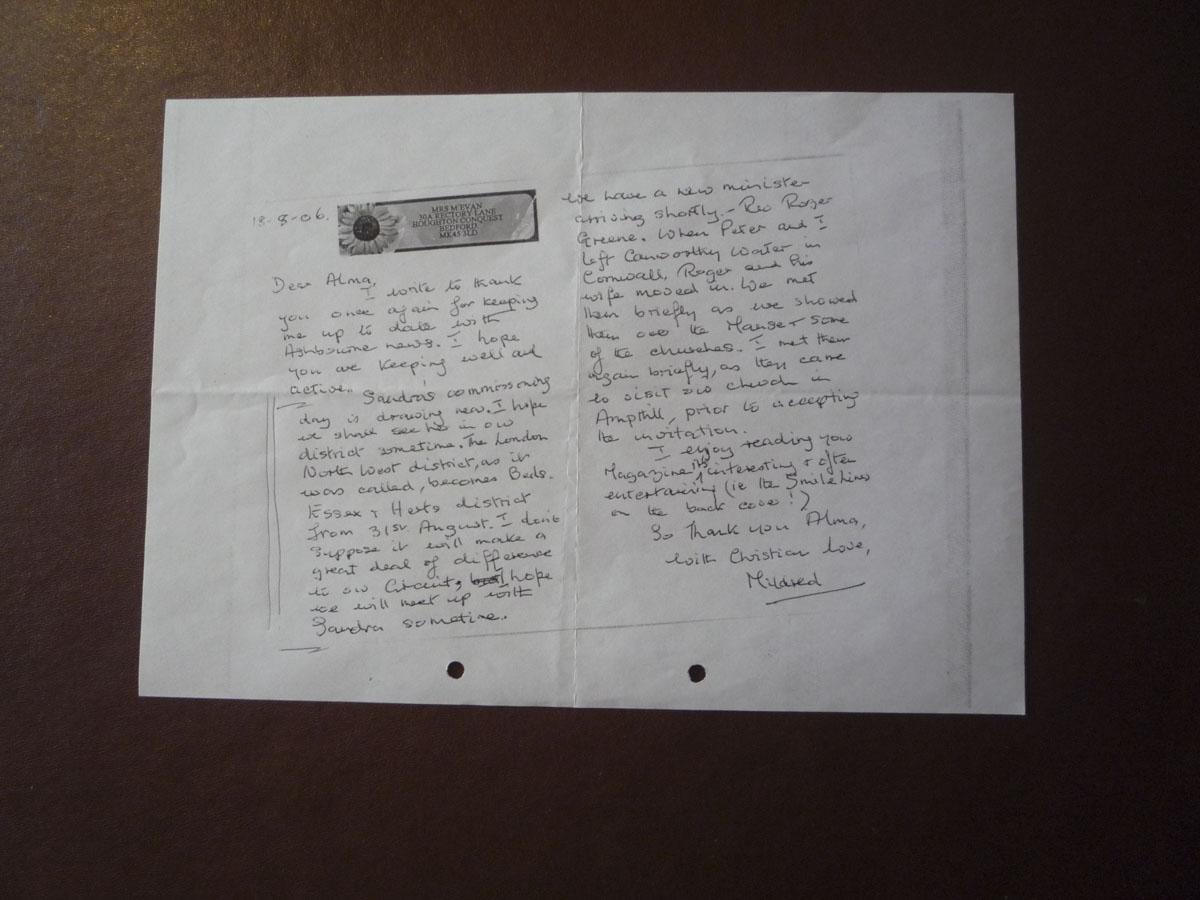 18-8-06.
MRS M EVAN
30A RECTORY LANE
HOUGHTON CONQUEST
BEDFORD
MK45 3LD
Dear Alma,
I write to thank
you once again for keeping
me up to date with
Ashbourne news. I hope
you are keeping well and
active.
Sandra's commissoning
day is drawing near. I hope
we shall see her in our
district sometime. The London
North West district, as it
was called, becomes Beds.
Essex + Herts district
from 31st August. I don't
suppose it will make a
great deal of difference
to our Circuit, but I hope
we will meet up with
Sandra sometime.
We have a new minister
arriving shortly - Rev Roger
Greene. When Peter and I
left Canworthy Water in
Cornwall, Roger and his
wife moved in. We met
them briefly as we showed
them over the Manse + some
of the churches. I met them
again briefly, as they came
to visit our church in
Ampthill, prior to accepting
the invitation.
I enjoy reading your
Magazine, its interesting + often
entertaining (ie the Smile lines
on the back cover!)
So Thank you Alma,
With Christian love,
Mildred